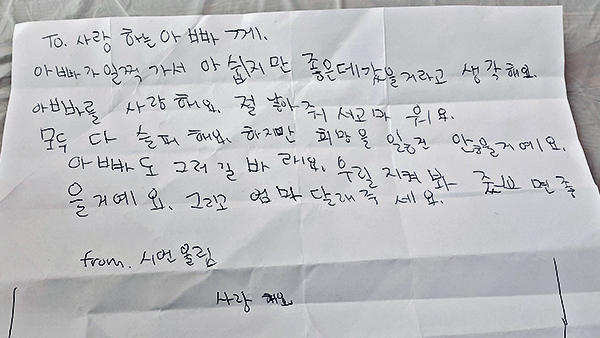 To. 사랑 하는 아빠 께.
아빠가 일찍 가서 아 쉽지만 좋은데 갔을거라고 생각해요.
아빠를 사랑해요. 절 낳아줘서 고마 워요.
모두 다 슬퍼 해요. 하지만 희망을 잃은건 안 을거예요.
아빠도 그러길 바 래요. 우릴 지켜 봐 줬으 면 좋
을거예 요. 그리고 엄마 달래주 세요.
from. 시언올림
사랑 해요